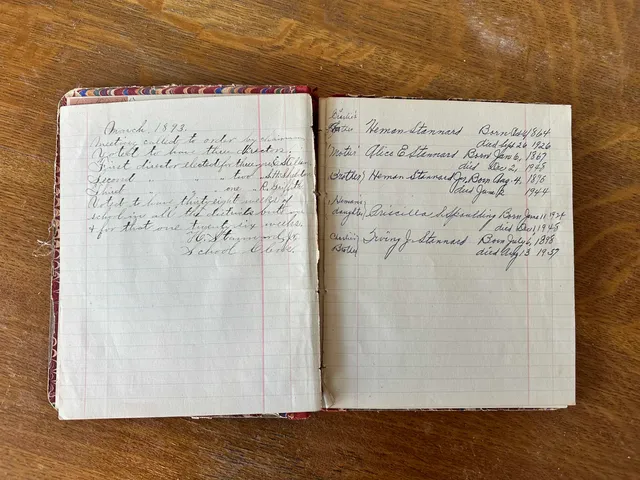 March, 1893.
Meeting called to order by
Voted to have three directors.
First director elected for three yrs
Second " " " two "
Third " " " one "
Voted to have thirty eight weeks of
school in all the districts but one
& for that one twenty six weeks.
School Clerk.
Charlie's
Father Heman Stannard Born 1864
died Sept 26 1926
"Mother" Alice E Stannard Born Jan 6, 1867
died Dec 2, 1945
"Brother" Heman Stannard Jr, Born Aug. 4,
died June 1944
"Heman's
daughter" Priscilla S Spaulding Born June 11
died Dec 1945
Charlie's Irving J. Stannard Born July 6, 1898
Brother died Aug 13 1937